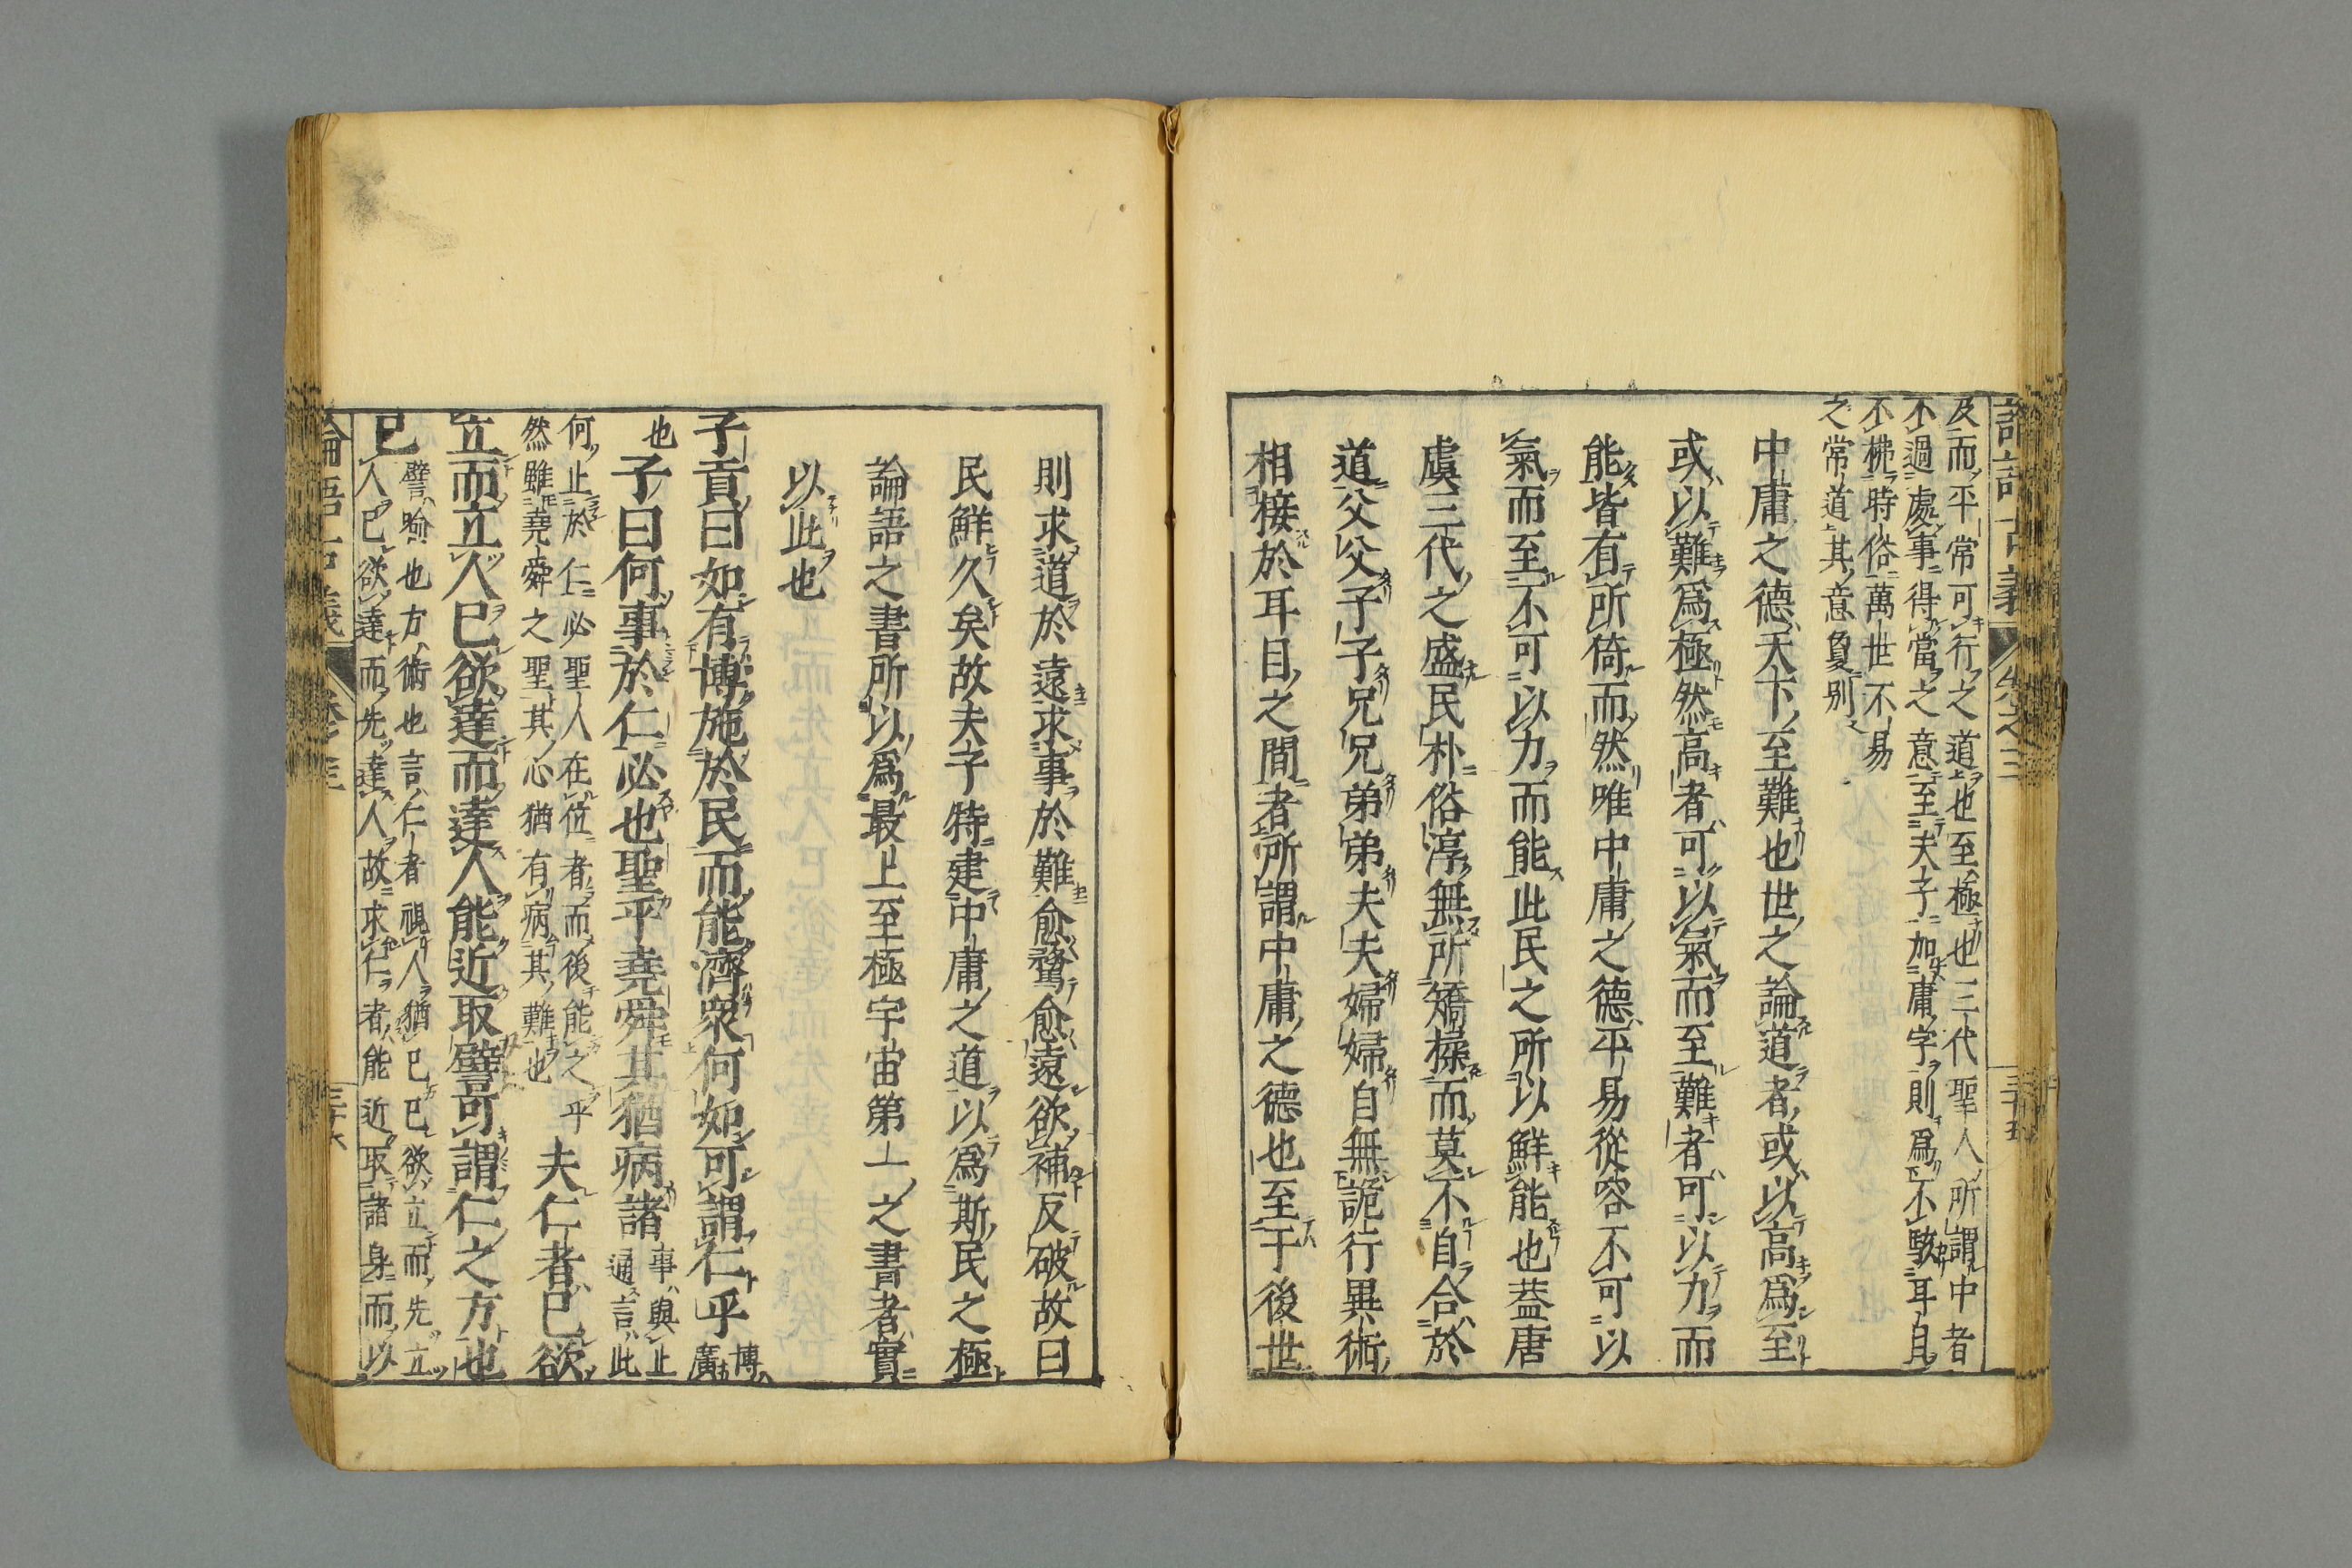 及而平常可行之道也至極也三代聖人所謂中者
不過處事得當之意至夫子加庸字則爲不駭耳目
不拂時俗萬世不易
之常道其意夐別
中庸之德天下至難也世之論道者或以高爲至
或以難爲極然高者可以氣而至難者可以力而
能皆有所倚而然唯中庸之德平易從容不可以
氣而至不可以力而能此民之所以鮮能也蓋唐
虞三代之盛民朴俗淳無所矯揉而莫不自合於
道父父子子兄兄弟弟夫夫婦婦自無詭行異術
相接於耳目之間者所謂中庸之德也至于後世
則求道於遠求事於難愈騖愈遠欲補反破故曰
民鮮久矣故夫子特建中庸之道以爲斯民之極
論語之書所以爲最上至極宇宙第一之書者實
以此也
子貢曰如有博施於民而能濟衆何如可謂仁乎
博
廣
也
子曰何事於仁必也聖乎堯舜其猶病諸
事與止
通言此
何止於仁必聖人在位者而後能之乎
然雖堯舜之聖其心猶有病其難也
夫仁者己欲
立而立人己欲達而達人能近取譬可謂仁之方也
已
譬喩也方術也言仁者視人猶己己欲立而先立
人己欲達而先達人故求仁者能近取諸身而以
論語古義
卷之三
三十五